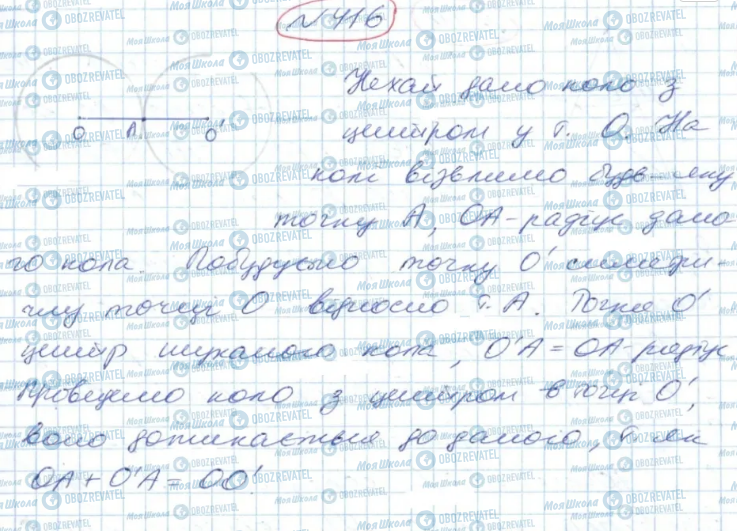 № 416
Нехай дано коло з
центром у т. О. На
колі візьмемо будь-яку
O A. O'
точку А, ОА - радіус дано
го кола. Побудуємо точку О' симетри-
чну точці О відносно т. А. Точка О'
центр шуканого кола, О'А = ОА - радіус
Проведемо коло з центром в точці О',
воно дотикається до даного, т. як
ОА + О'А = ОО'.
Моя Школа
OBOZREVATEL